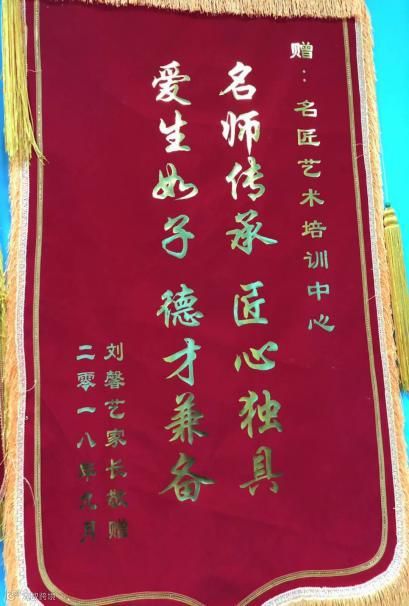 赠：名匠艺术培训中心
名师传承 匠心独具
爱生如子 德才兼备
刘馨艺家长敬赠
二零一八年九月